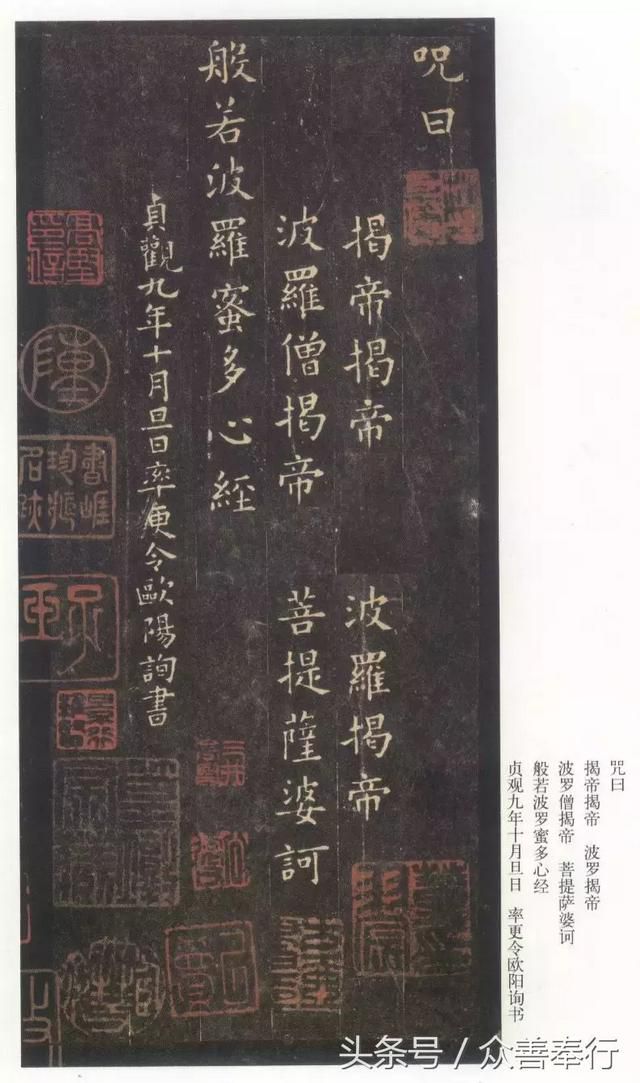 咒曰
揭帝揭帝 波羅揭帝
波羅僧揭帝 菩提薩婆訶
般若波羅蜜多心經
貞觀九年十月旦日率更令歐陽詢書
陳
咒曰
揭帝揭帝 波罗揭帝
波罗僧揭帝 菩提萨婆诃
般若波罗蜜多心经
贞观九年十月旦日 率更令欧阳询书
头条号/众善奉行